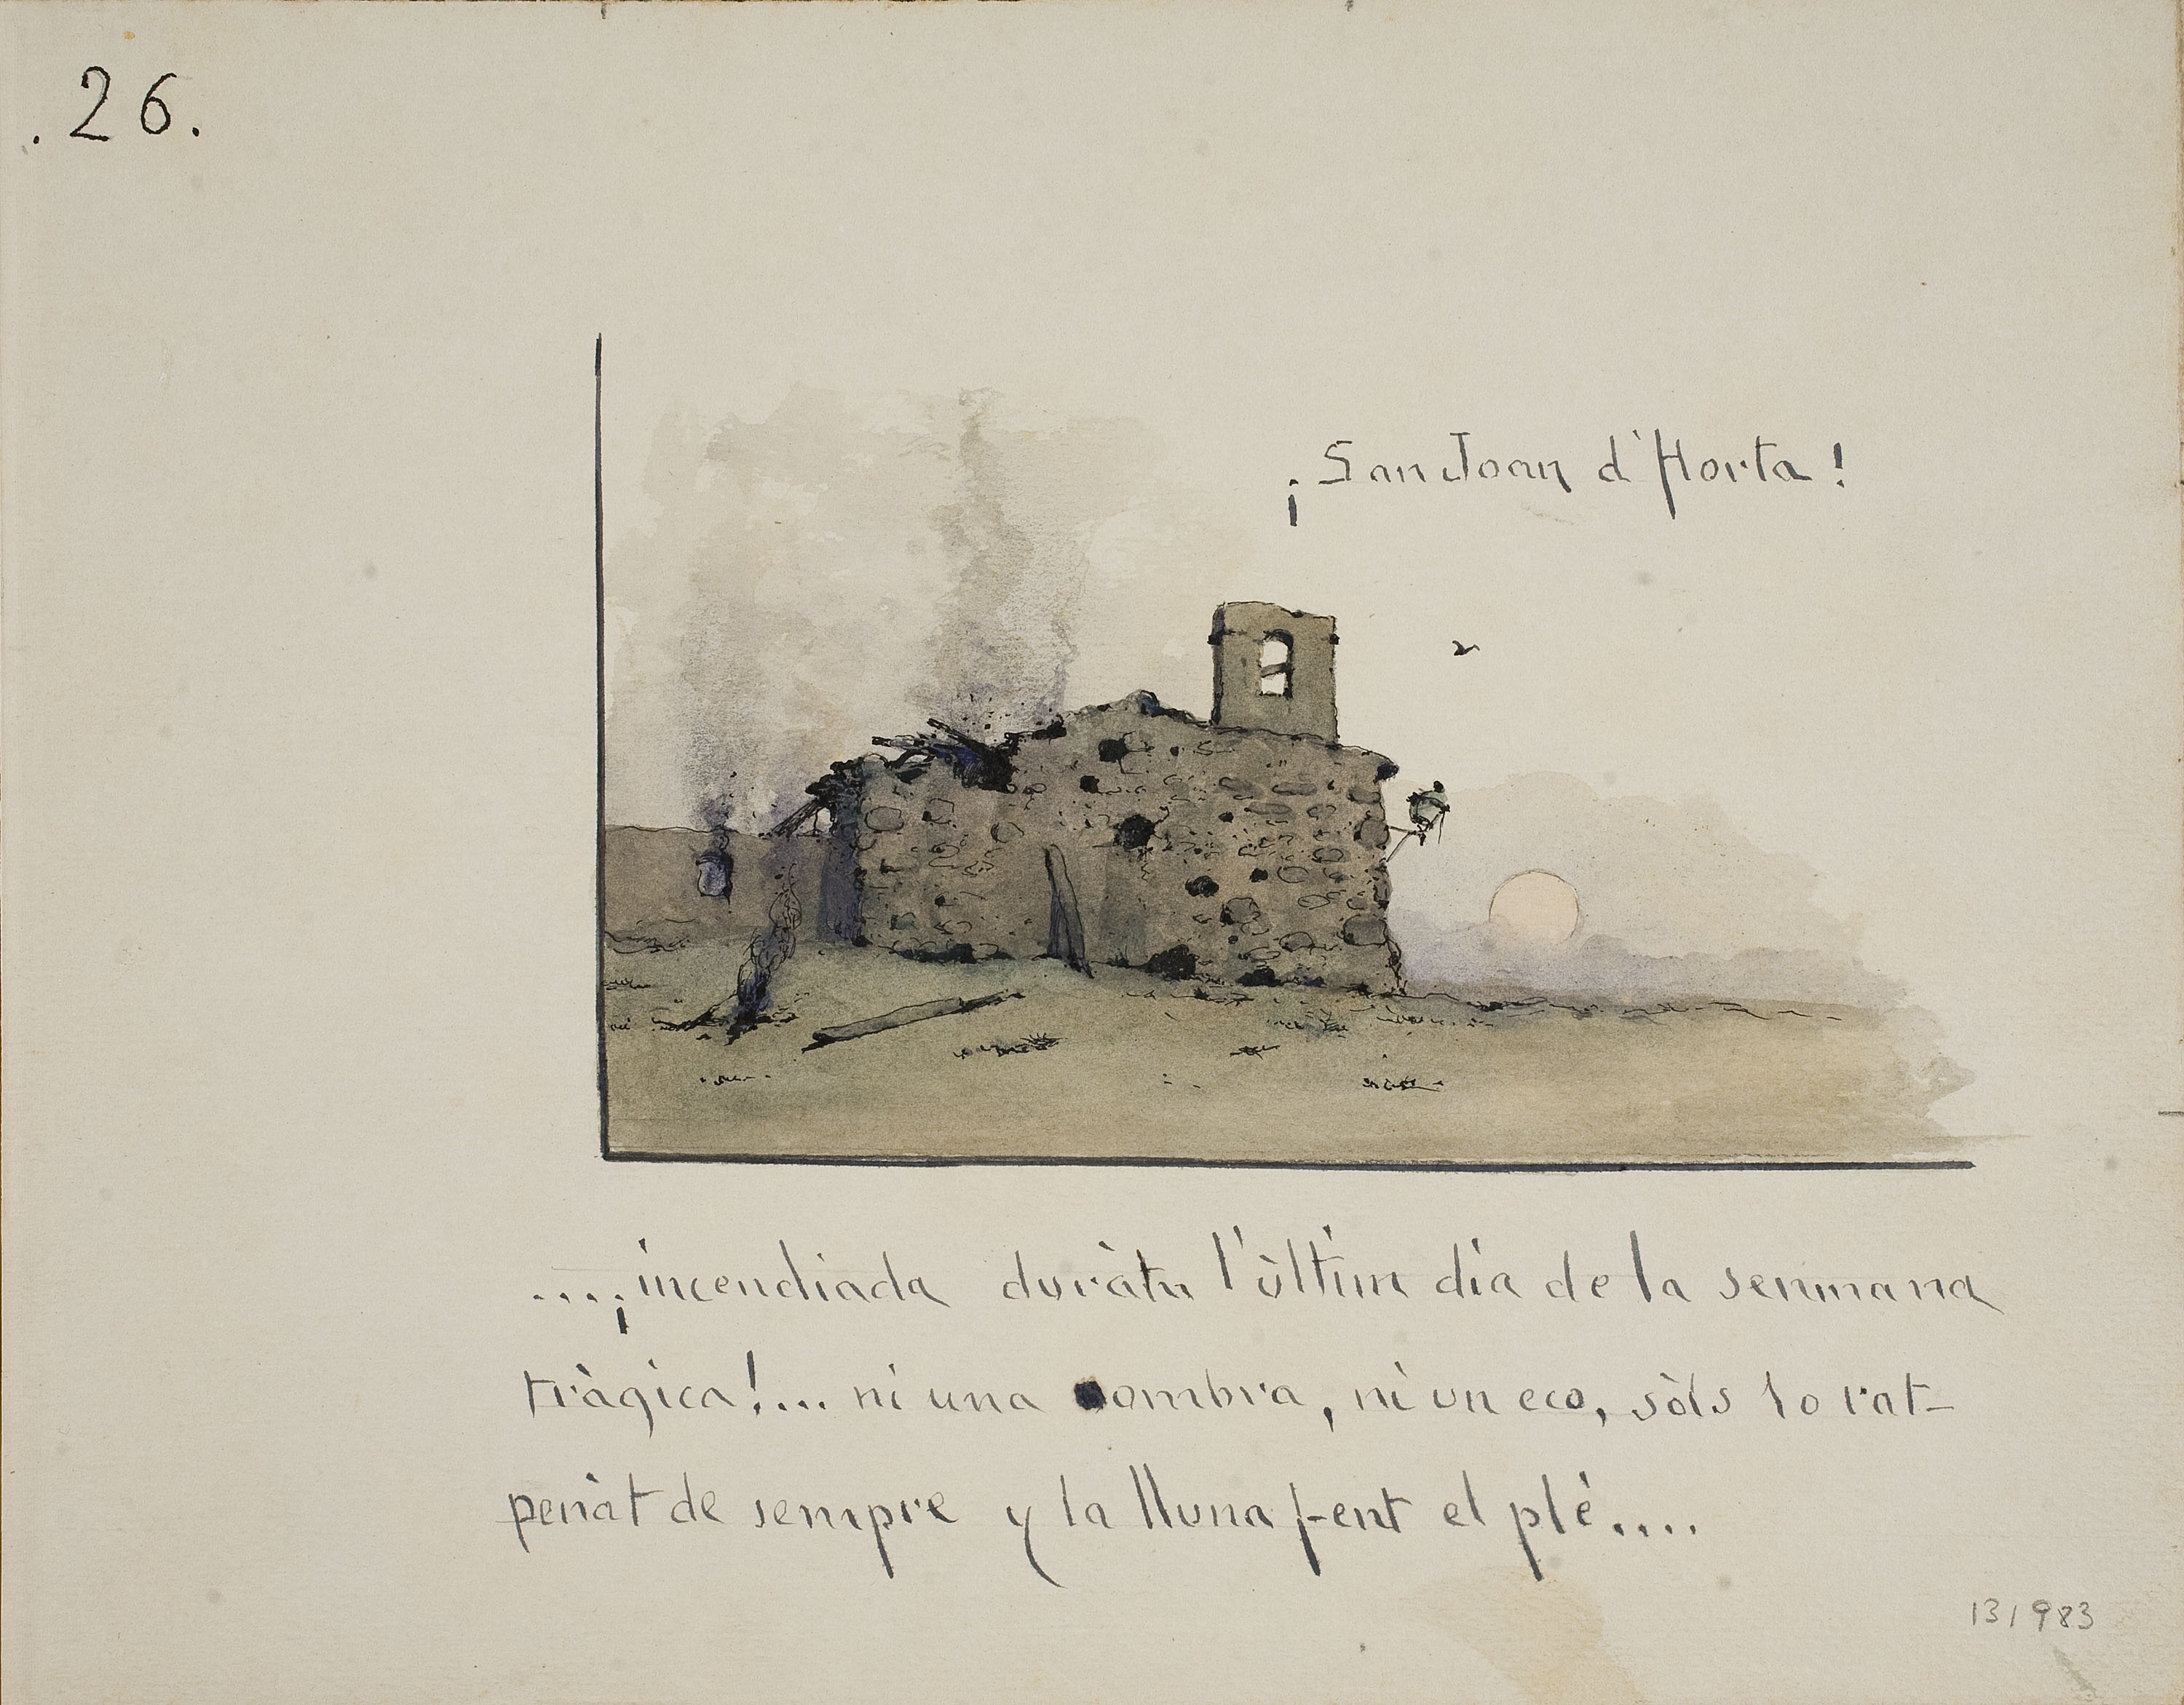 .26.
¡San Joan d'Horta!
....¡incendiada duràtn l'ùltim dia de la senmana
tràgica!... ni una sombra, ni un eco, sòls lo rat-
penàt de sempre y la lluna fent el plè....
131983